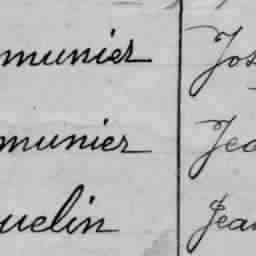 munier Jos
munier Jea
uelin Jean